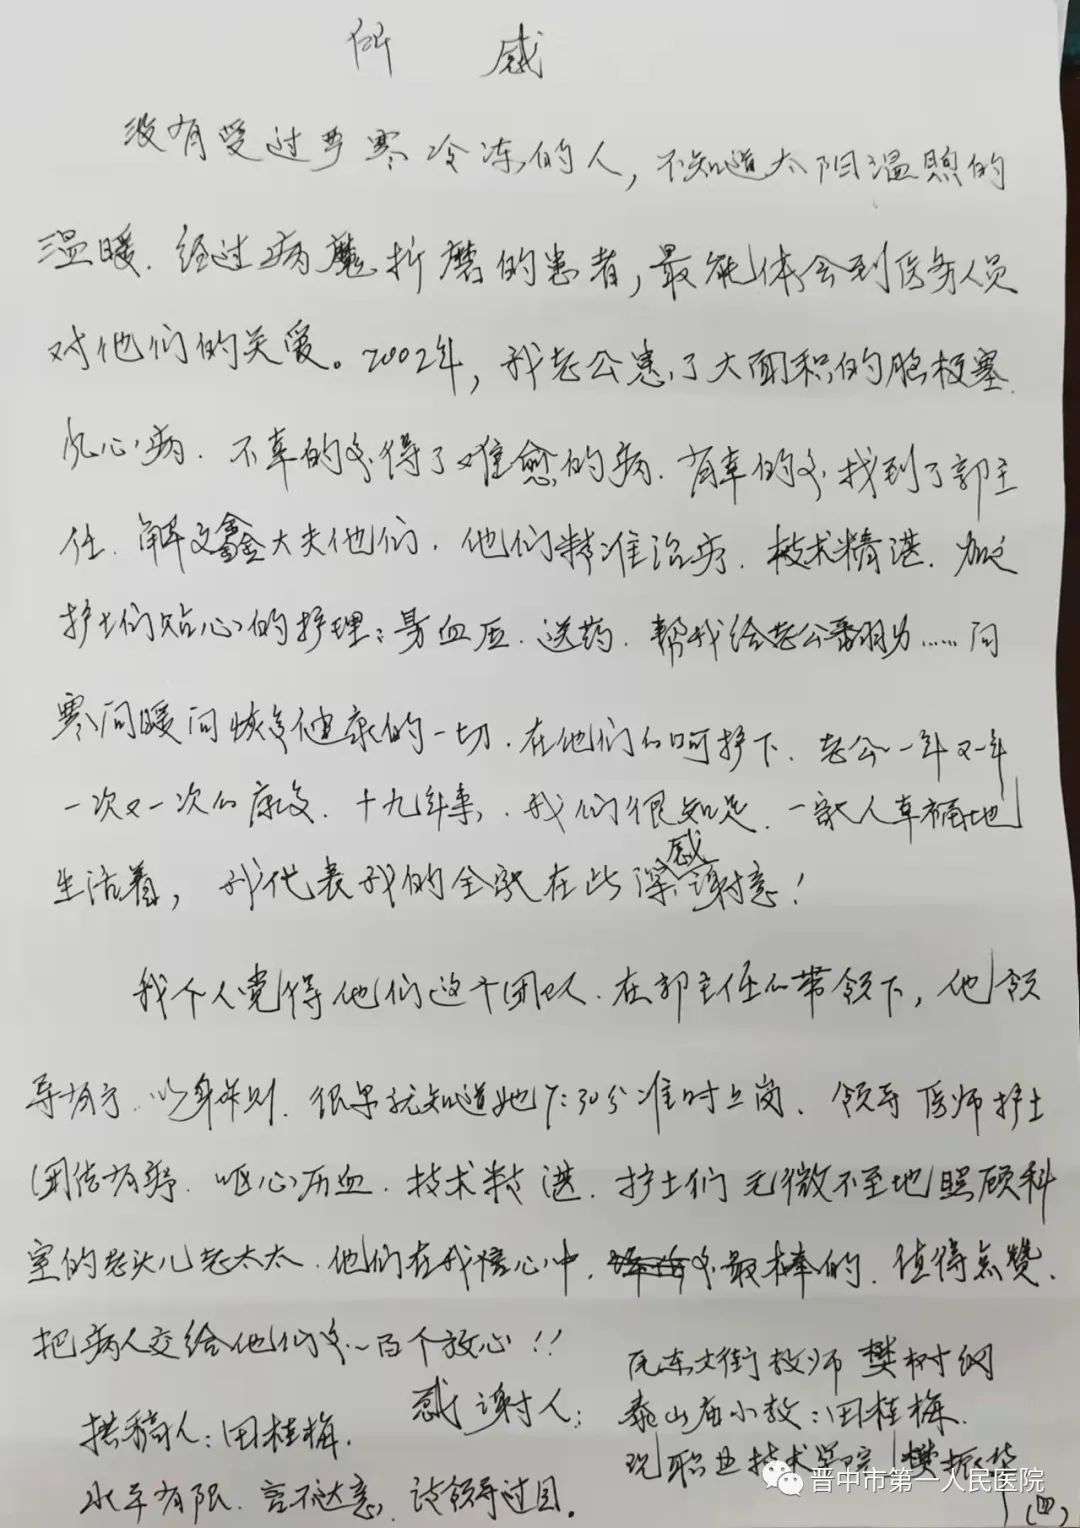 所 感
没有受过严寒冷冻的人，不知道太阳温照的
温暖.经过病魔折磨的患者，最能体会到医务人员
对他们的关爱。2002年，我老公患了大面积的脑梗塞.
心病.不幸的是得了难愈的病.有幸的是找到了郭主
任.解文鑫大夫他们.他们精准治疗.技术精湛.加之
护士们贴心的护理：量血压.送药.帮我给老公翻身……问
寒问暖问恢复健康的一切.在他们的呵护下.老公一年又一年
一次又一次的康复.十九年来，我们很知足.一家人幸福地
生活着，我代表我的全家在此深感谢意！
我个人觉得他们这个团队.在郭主任的带领下，他领
导有方.以身作则.很早就知道她7:30分准时上岗.领导医师护士
团结有爱.呕心历血.技术精湛.护士们无微不至地照顾科
室的老头儿老太太.他们在我心中.是最棒的.值得点赞.
把病人交给他们是一百个放心！！
感谢人：东大街教师 樊树纲
泰山庙小教：田桂梅.
现职业技术学院 樊振华
拱稿人：田桂梅.
水平有限.言不达意.请领导过目。
(四)
晋中市第一人民医院